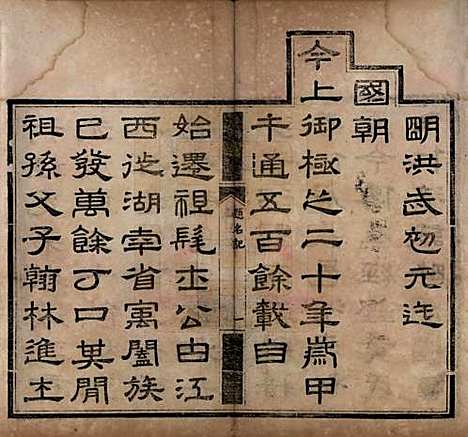 明洪武初元迄
國朝
今上御極之二十年歲甲
午通五百餘載自
題名記
一
始遷祖髦士公由江
西徙湖南省寓闔族
已發萬餘丁口其間
祖孫父子翰林進士